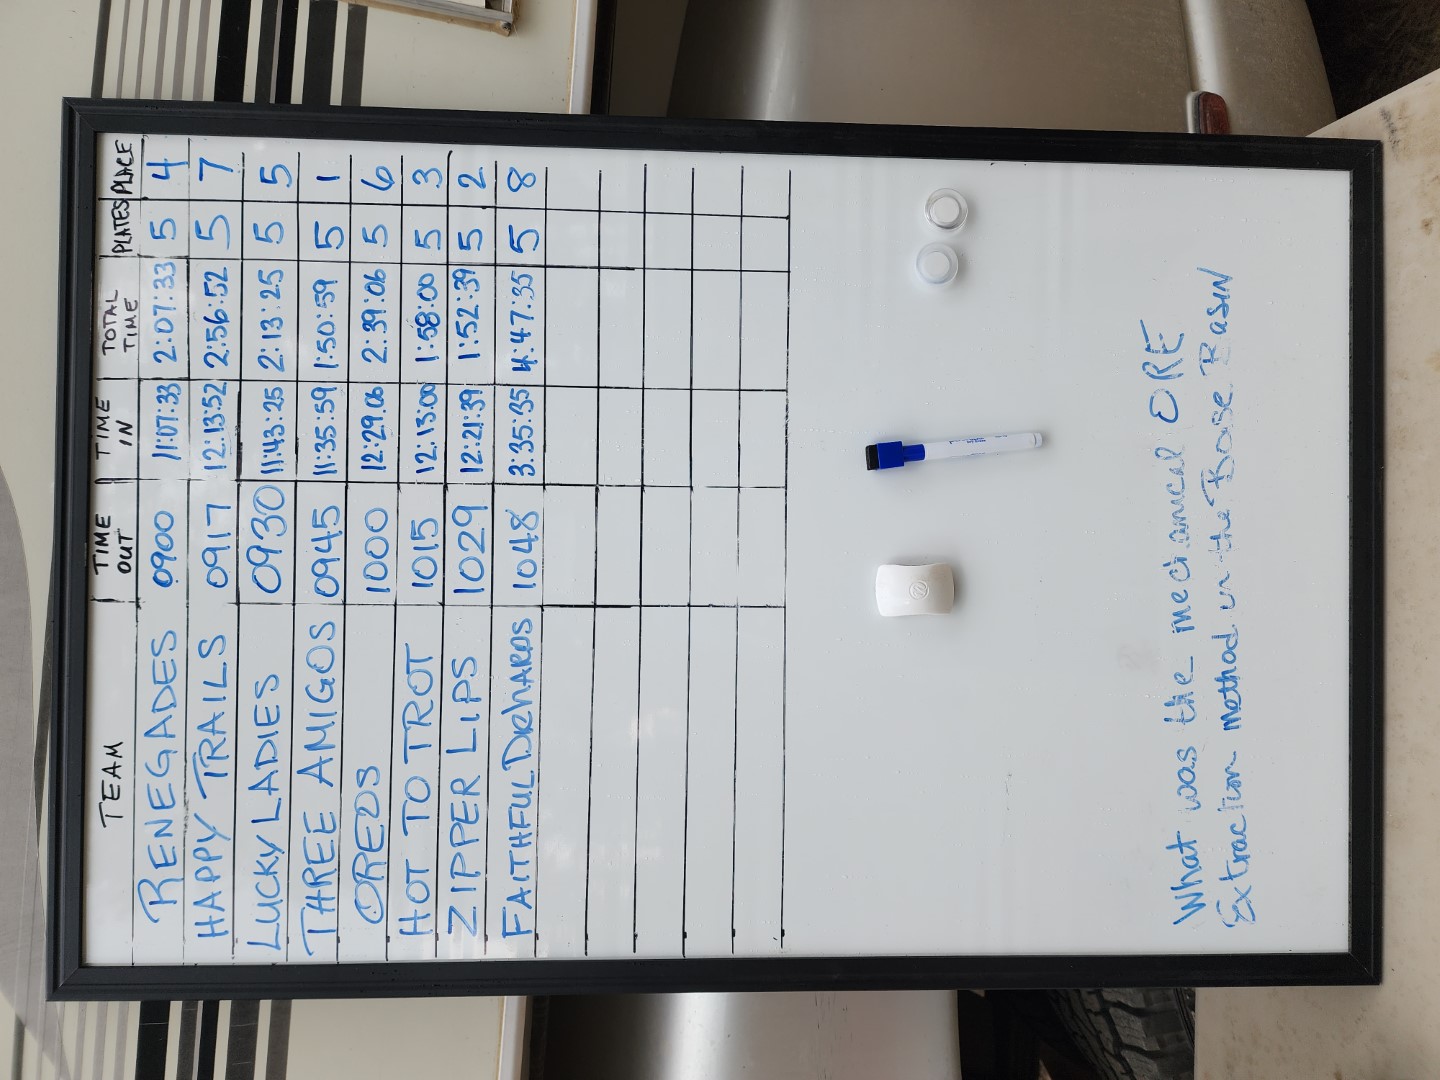 TEAM TIME OUT TIME IN TOTAL TIME PLATES PLACE
RENEGADES 0900 11:07:33 2:07:33 5 4
HAPPY TRAILS 0917 12:13:52 2:56:52 5 7
LUCKY LADIES 0930 11:43:25 2:13:25 5 5
THREE AMIGOS 0945 11:35:59 1:50:59 5 1
OREOS 1000 12:29:06 2:39:06 5 6
HOT TO TROT 1015 12:13:00 1:58:00 5 3
ZIPPER LIPS 1029 12:21:39 1:52:39 5 2
FAITHFUL DIEHARDS 1048 3:35:35 4:47:35 5 8
What was the mechanical ORE
Extraction method in the Boise Basin